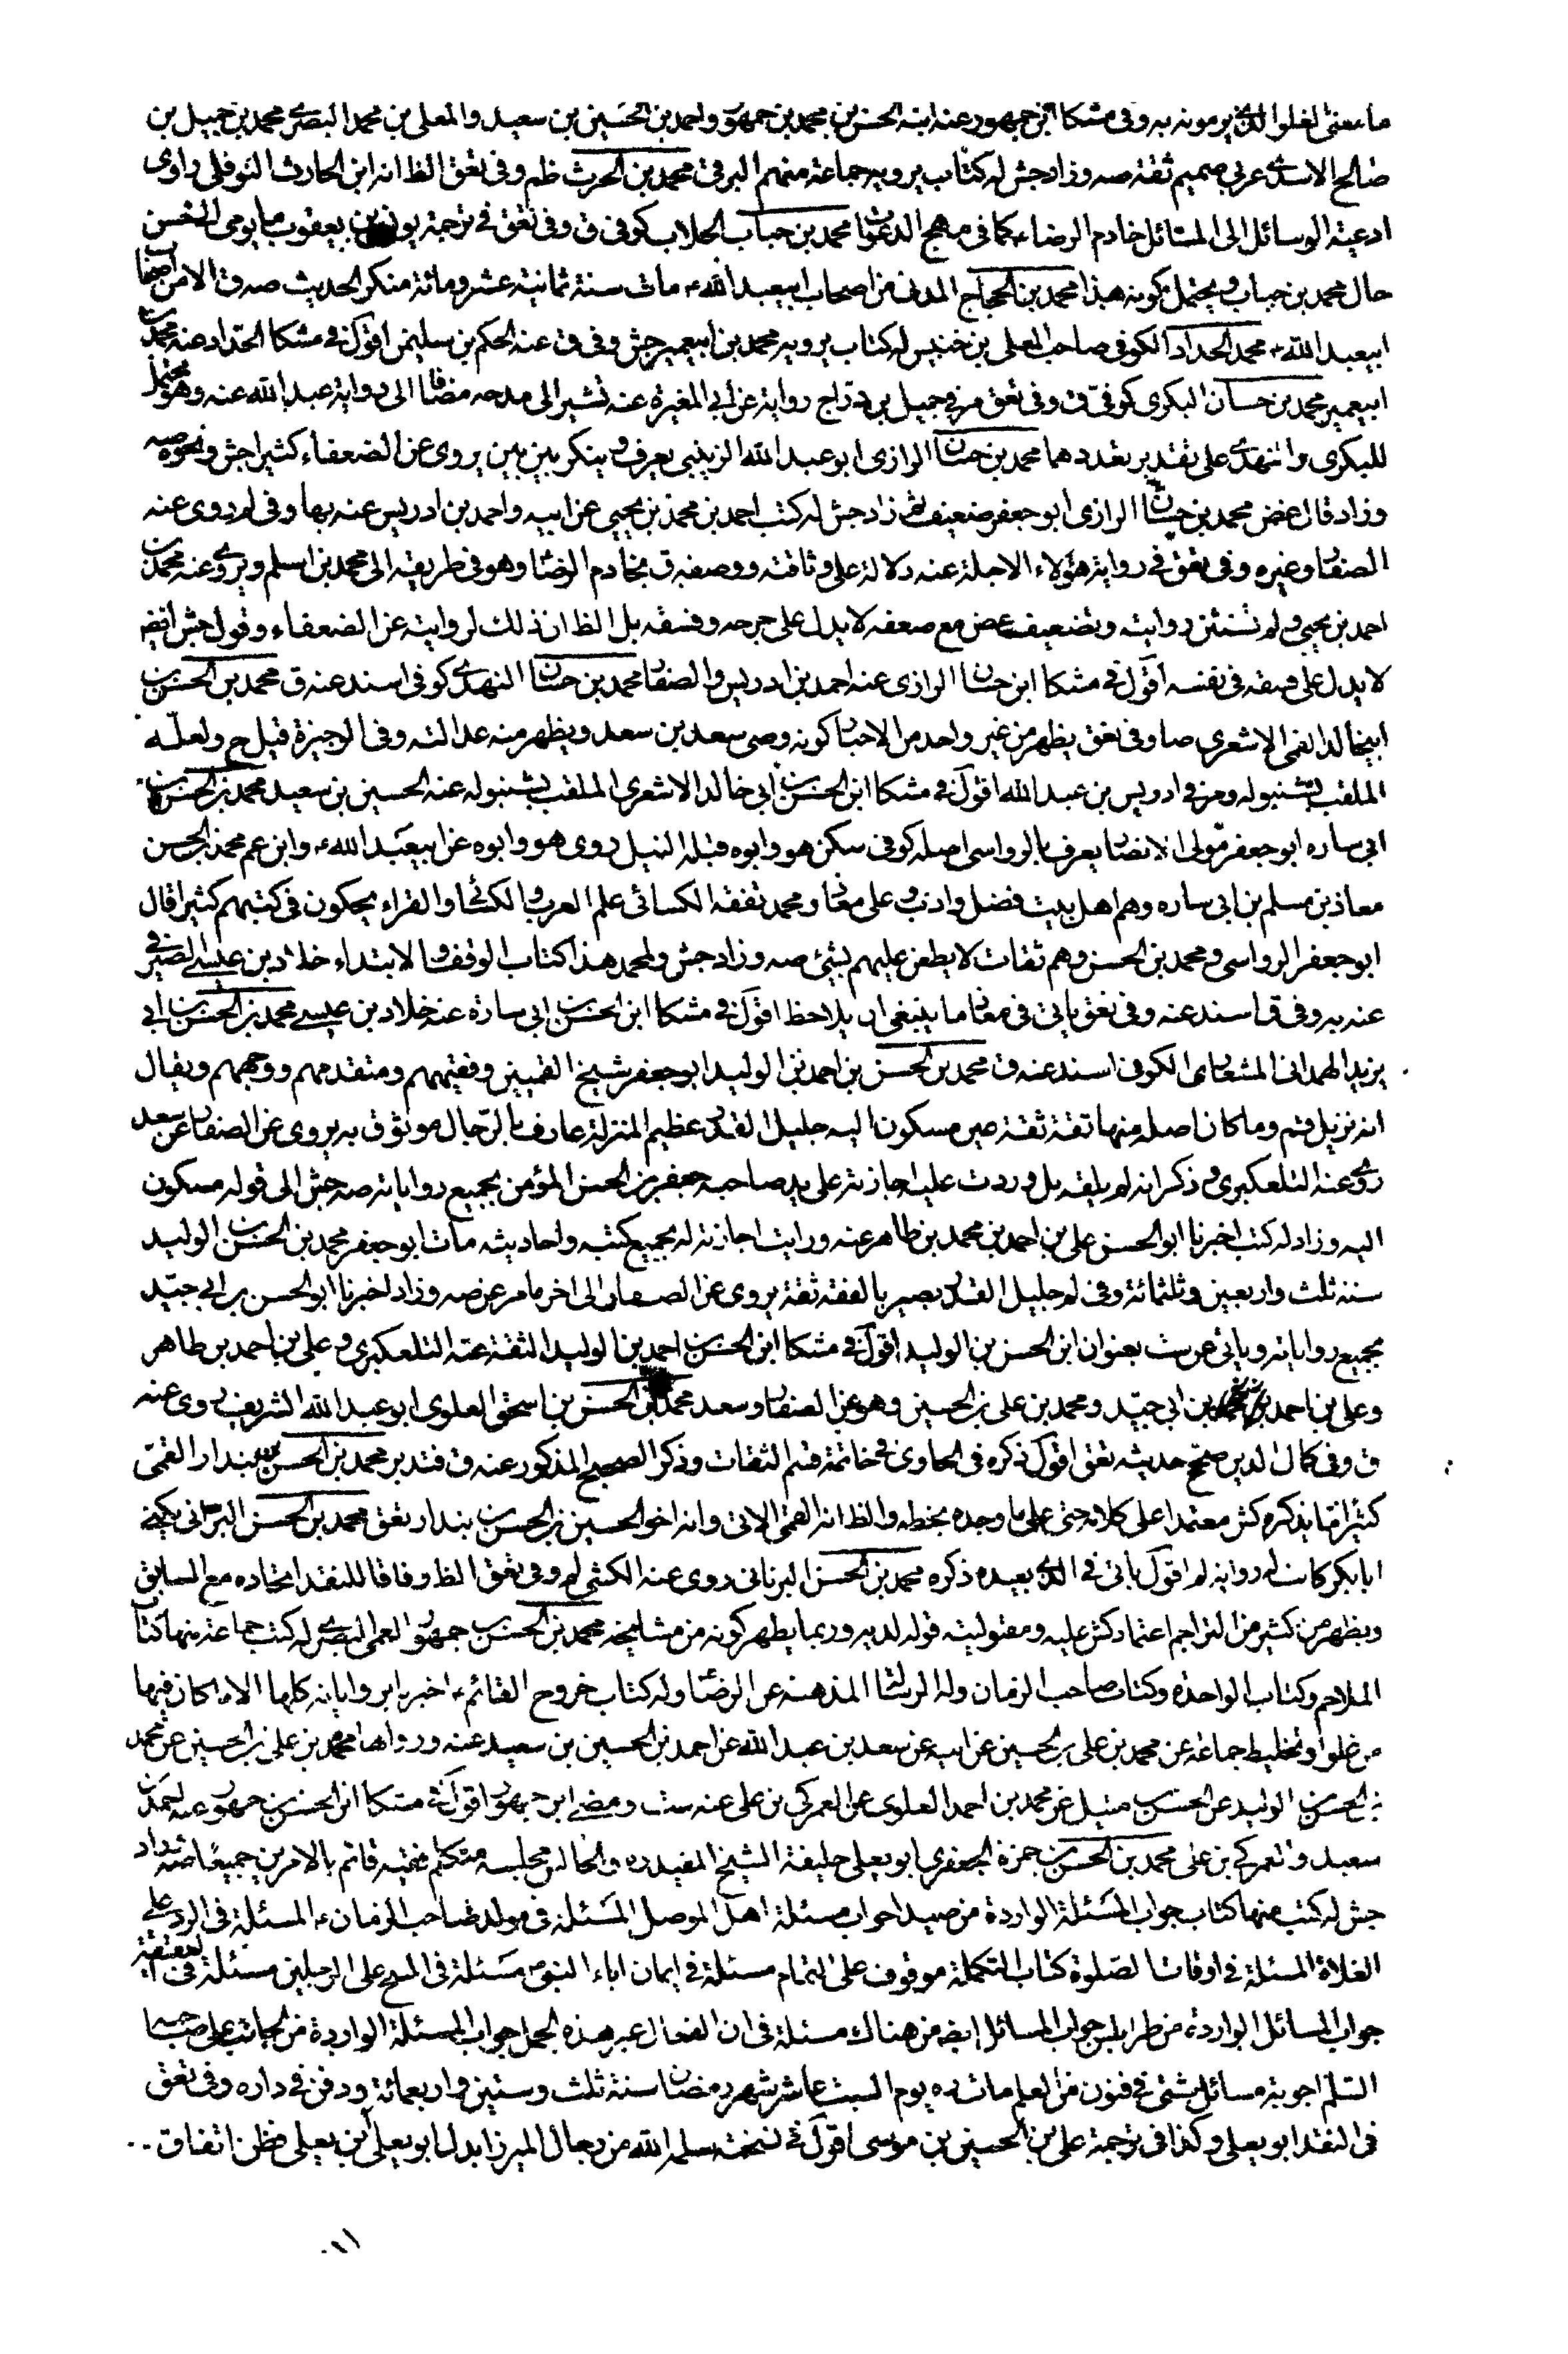 ما معنى الغلو الذي يرمونه به وفى مشكا ابن جمهور عنه ابنه الحسن بن محمد بن جمهور واحمد بن الحسين بن سعيد والمعلى بن محمد البصرى محمد بن جبيل بن
صالح الاسدى عربى صميم ثقة صه وزاد جش له كتاب يرويه جماعة منهم البرقى محمد بن الحرث ظم وفى تعق الظ انه ابن الحارث النوفلى راوى
ادعية الوسائل الى المسائل خادم الرضاء كما فى مهج الدعوات محمد بن حباب الجلاب كوفى ق وفى تعق فى ترجمة يونس بن يعقوب ما يومى الى حسن
حال محمد بن حباب ويحتمل كونه هذا محمد بن الحجاج المدنى من اصحاب ابيعبد الله ع مات سنة ثمانية عشر ومائة منكر الحديث صه ق الا من اصحاب
ابيعبد الله ع محمد الحداد الكوفى صاحب المعلى بن خنيس له كتاب يرويه محمد بن ابيعمير جش وفى ق عنه الحكم بن سليمن اقول فى مشكا الحداد عنه محمد بن
ابيعمير محمد بن حسان البكرى كوفى ق وفى تعق مر فى جميل بن دراج رواية عن ابى المغيرة عنه تشير الى مدحه مضافا الى رواية عبد الله عنه وهو محتمل
للبكرى والنهدى على تقدير تعددهما محمد بن حسان الرازى ابو عبد الله الزينبى يعرف وينكر بين بين يروى عن الضعفاء كثيرا جش ونحوه صه
وزاد قال غض محمد بن حسان الرازى ابو جعفر ضعيف ثم زاد جش له كتب احمد بن محمد بن يحيى عن ابيه واحمد بن ادريس عنه بها وفى لم روى عنه
الصفار وغيره وفى تعق فى رواية هؤلاء الاجلة عنه دلالة على وثاقته ووصفه ق بخادم الرضا وهو فى طريقه الى محمد بن اسلم ويروى عنه محمد بن
احمد بن يحيى ولم تستثن روايته وتضعيف غض مع ضعفه لا يدل على جرحه وفسقه بل الظ ان ذلك لروايته عن الضعفاء وقول جش ايضه
لا يدل على فسقه فى نفسه اقول فى مشكا ابن حسان الرازى عنه احمد بن ادريس والصفار محمد بن حسان النهدى كوفى اسند عنه ق محمد بن الحسن بن
ابيخالد القمى الاشعرى ضا وفى تعق يظهر من غير واحد من الاخبار كونه وصى سعد بن سعد ويظهر منه عدالته وفى الوجيزة قيل ح ولعله
الملقب بشنبوله ومر فى ادريس بن عبد الله اقول فى مشكا ابن الحسن بن ابى خالد الاشعرى الملقب بشنبوله عنه الحسين بن سعيد محمد بن الحسن بن
ابى ساره ابو جعفر مولى الانصار يعرف بالرواسى اصله كوفى سكن هو وابوه قبله النيل روى هو وابوه عن ابيعبد الله ع وابن عم محمد بن الحسن
معاذ بن مسلم بن ابى ساره وهم اهل بيت فضل وادب وعلى معاذ ومحمد تفقه الكسائى علم العرب والكسائى والفراء يحكون فى كتبهم كثيرا قال
ابو جعفر الرواسى ومحمد بن الحسن وهم ثقات لا يطعن عليهم بشئ صه وزاد جش ولمحمد هذا كتاب الوقف والابتداء خلاد بن عيسى الصيرفى
عنه به وفى ق اسند عنه وفى تعق ياتى فى معاذ ما ينبغى ان يلاحظ اقول فى مشكا ابن الحسن بن ابى سارة عنه خلاد بن عيسى محمد بن الحسن بن ابى
يزيد الهمدانى المشعارى الكوفى اسند عنه ق محمد بن الحسن بن احمد بن الوليد ابو جعفر شيخ القميين وفقيههم ومتقدمهم ووجههم ويقال
انه نزيل قم وما كان اصله منها ثقة ثقة عين مسكون اليه جليل القدر عظيم المنزلة عارف بالرجال موثوق به يروى عن الصفار عن سعد
روى عنه التلعكبرى وذكر انه لم يلقه بل وردت عليه اجازته على يد صاحبه جعفر بن الحسن المؤمن بجميع رواياته صه جش الى قوله مسكون
اليه وزاد له كتب اخبرنا ابو الحسن على بن احمد بن محمد بن طاهر عنه ورايت اجازته له بجميع كتبه واحاديثه مات ابو جعفر محمد بن الحسن بن الوليد
سنة ثلث واربعين وثلثمائة وفى لم جليل القدر بصير بالفقه ثقة يروى عن الصفار الى اخر ما مر عن صه وزاد اخبرنا ابو الحسن بن ابى جيد
بجميع رواياته وياتى عن ست بعنوان ابن الحسن بن الوليد اقول فى مشكا ابن الحسن بن احمد بن الوليد الثقة عنه التلعكبرى وعلى بن احمد بن طاهر
وعلى بن احمد بن محمد بن ابى جيد ومحمد بن على بن الحسين وهو عن الصفار وسعد محمد بن الحسن بن اسحق العلوى ابو عبد الله الشريف روى عنه
ق وفى كمال الدين صحح حديثه تعق اقول ذكره فى الحاوى فى خاتمة قسم الثقات وذكر الصحيح المذكور عنه ق فتدبر محمد بن الحسن بن بندار القمى
كثيرا ما يذكره كش معتمدا على كلامه حتى على ما وجده بخطه والظ انه القمى الاتى وانه اخو الحسين بن الحسن بن بندار تعق محمد بن الحسن البرانى يكنى
ابا بكر كانت له رواية لم اقول ياتى فى الذى بعيده ذكره محمد بن الحسن البرنانى روى عنه الكشى لم وفى تعق الظ وفاقا للنقد اتحاده مع السابق
ويظهر من كثير من التراجم اعتماد كش عليه ومقبولية قوله لديه وربما يظهر كونه من مشايخه محمد بن الحسن بن جمهور العمى البصرى له كتب جماعة منها كتاب
الملاحم وكتاب الواحدة وكتاب صاحب الزمان وله الرسالة المذهبة عن الرضا وله كتاب خروج القائم ع اخبرنا برواياته كلها الا ما كان فيها
من غلو او تخليط جماعة عن محمد بن على بن الحسين عن ابيه عن سعد بن عبد الله عن احمد بن الحسين بن سعيد عنه ورواها محمد بن على بن الحسين عن محمد
بن الحسن بن الوليد عن الحسن بن متيل عن محمد بن احمد العلوى عن العمركى بن على عنه ست ومضى ابن جمهور اقول فى مشكا ابن الحسن بن جمهور عنه احمد بن
سعيد والعمركى بن على محمد بن الحسن بن حمزة الجعفرى ابو يعلى خليفة الشيخ المفيد ره والجالس مجلسه متكلم فقيه قائم بالامرين جميعا صه وزاد
جش له كتب منها كتاب جواب المسئلة الواردة من صيدا جواب مسئلة اهل الموصل المسئلة فى مولد صاحب الزمان ع المسئلة فى الرد على
الغلاة المسئلة فى اوقات الصلوة كتاب التكملة موقوف على التمام مسئلة فى ايمان اباء النبى ص مسئلة فى المسح على الرجلين مسئلة فى العقيقة
جواب المسائل الواردة من طرابلس جواب المسائل ايضه من هناك مسئلة فى ان الفعال غير هذه الجمل جواب المسئلة الواردة من الحاير على صاحبه
السلام اجوبة مسائل شتى فى فنون من العلم مات ره يوم السبت عاشر شهر رمضان سنة ثلث وستين واربعمائة ودفن فى داره وفى تعق
فى النقد ابو يعلى وكذا فى ترجمة على بن الحسين بن موسى اقول فى نسخته سلمه الله من رجال الميرزا بدل ابو يعلى ابن يعلى فظن اتفاق